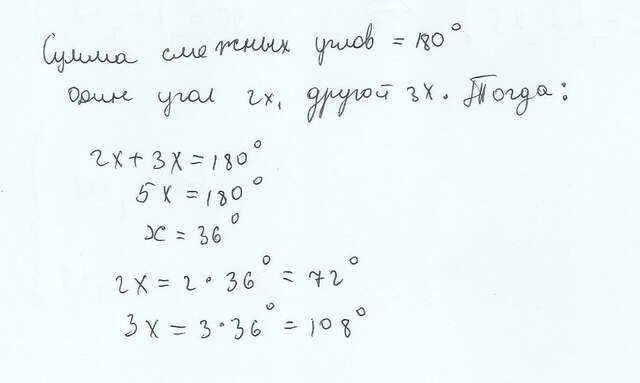 Сумма смежных углов = 180°
Один угол 2х, другой 3х. Тогда:
2х + 3х = 180°
5х = 180°
х = 36°
2х = 2 · 36° = 72°
3х = 3 · 36° = 108°